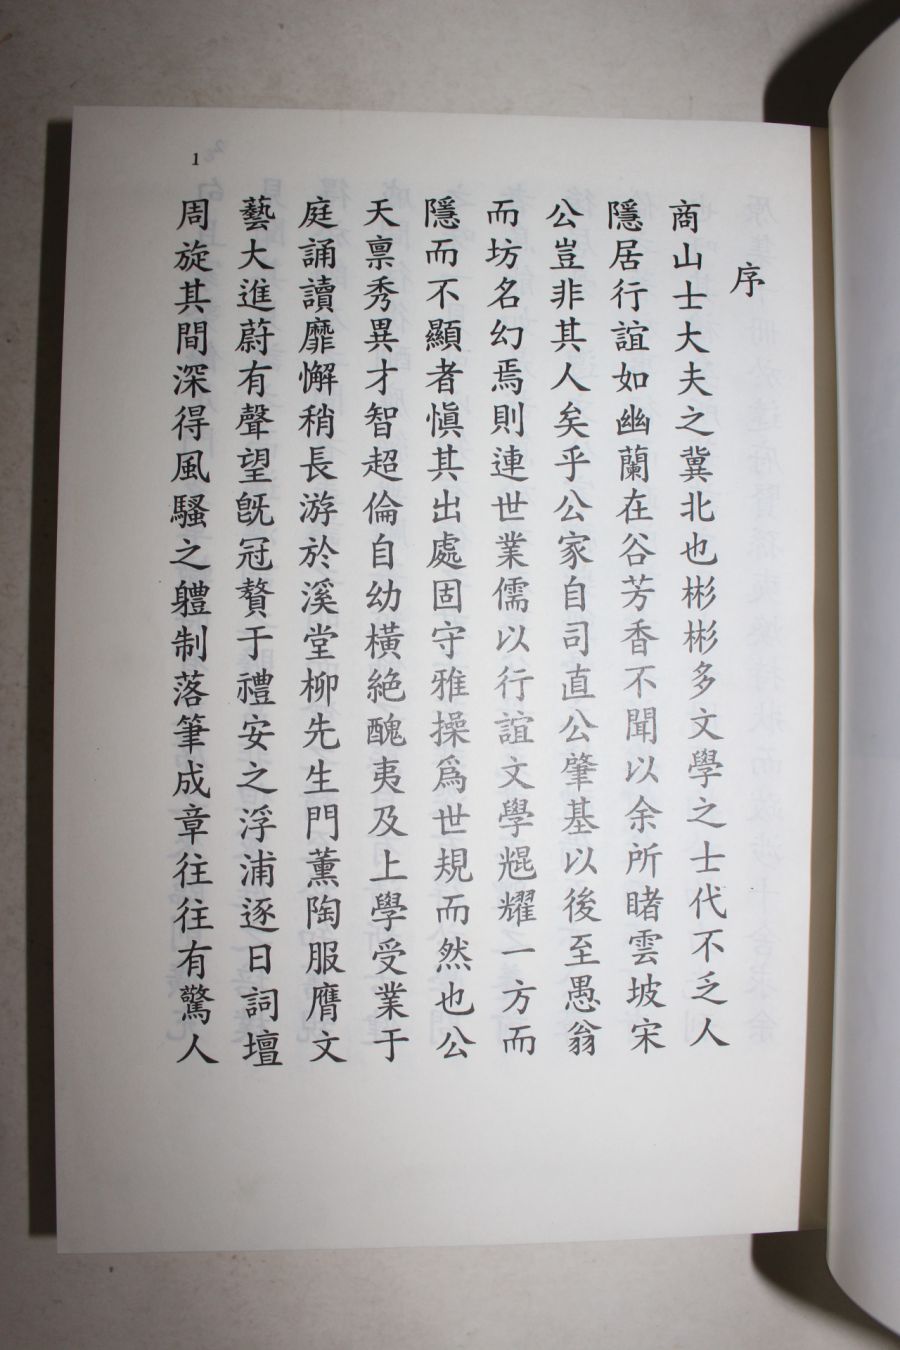 序
商山士大夫之冀北也彬彬多文學之士代不乏人
隱居行誼如幽蘭在谷芳香不聞以余所睹雲坡宋
公豈非其人矣乎公家自司直公肇基以後至愚翁
而坊名幻焉則連世業儒以行誼文學焜耀一方而
隱而不顯者愼其出處固守雅操爲世規而然也公
天禀秀異才智超倫自幼橫絶醜夷及上學受業于
庭誦讀靡懈稍長游於溪堂柳先生門薰陶服膺文
藝大進蔚有聲望旣冠贅于禮安之浮浦逐日詞壇
周旋其間深得風騷之軆制落筆成章往往有驚人
1